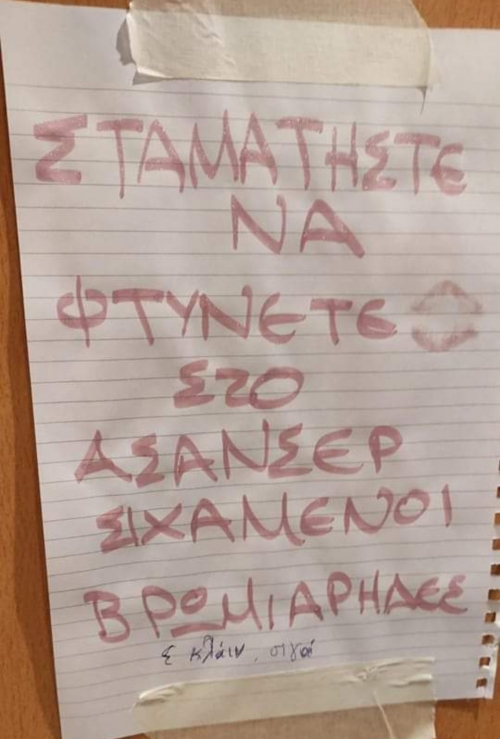 ΣΤΑΜΑΤΗΣΤΕ
ΝΑ
ΦΤΥΝΕΤΕ
ΣΤΟ
ΑΣΑΝΣΕΡ
ΣΙΧΑΜΕΝΟΙ
ΒΡΩΜΙΑΡΗΔΕΣ
ε κλάιν, σιγά